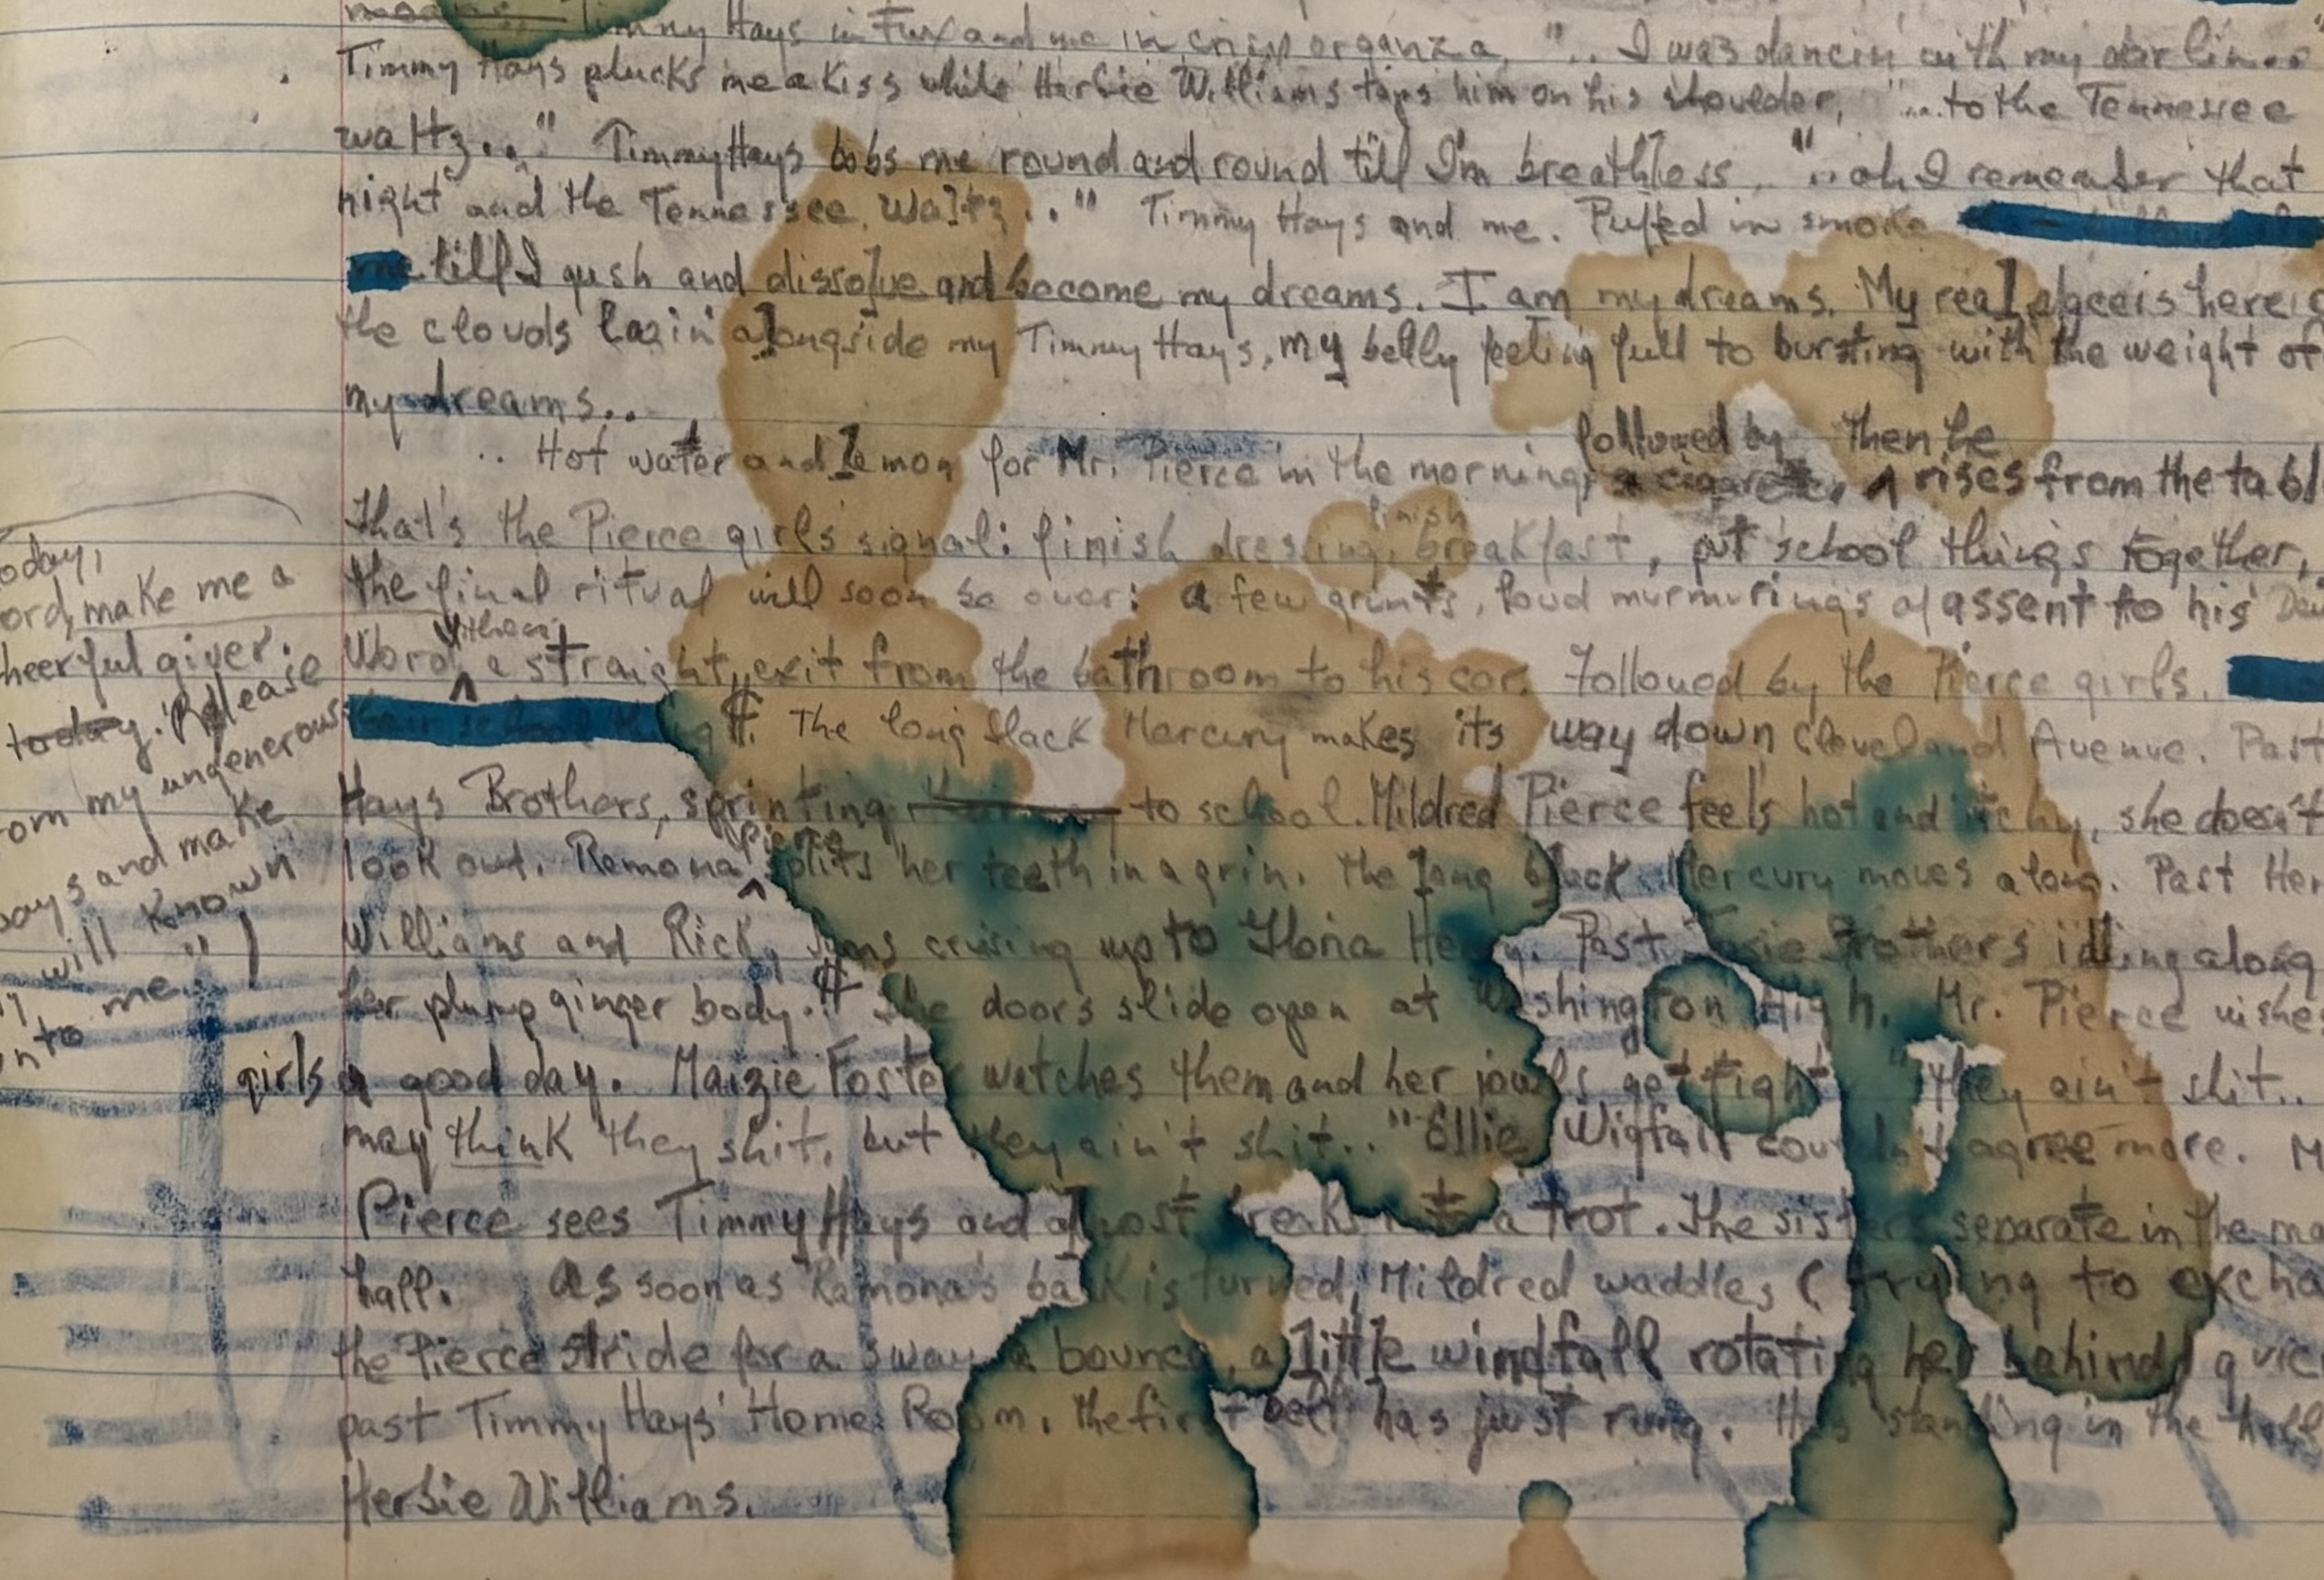 Timmy Hays in Tux and me in crisp organza, ".. I was dancin with my darlin..
Timmy Hays plucks me a kiss while Herbie Williams taps him on his shoulder, "...to the Tennessee
waltz..." Timmy Hays bobs me round and round till I'm breathless, "..oh I remember that
night and the Tennessee Waltz.." Timmy Hays and me. Puffed in smoke
me till I gush and dissolve and become my dreams. I am my dreams. My real place is here
the clouds lazin' alongside my Timmy Hays, my belly feeling full to bursting with the weight of
my dreams..
followed by then he
.. Hot water and lemon for Mr. Pierce in the morning, a cigarette, ^ rises from the tabl
finish
That's the Pierce girls signal: finish dressing, breakfast, put school things together,
the final ritual will soon be over: a few grunts, loud murmurings of assent to his
Word, ^ a straight exit from the bathroom to his car. Followed by the Pierce girls.
their school things. The long black Mercury makes its way down Cleveland Avenue. Past
Hays Brothers, sprinting to school. Mildred Pierce feels hot and itchy, she doesn't
Pierce
look out. Ramona ^ splits her teeth in a grin. The long black Mercury moves along. Past Her
Williams and Ricky cruising up to Ilona Henry. Past Brothers idling along
her plump ginger body. The doors slide open at Washington High. Mr. Pierce wishe
girls a good day. Maizie Foster watches them and her jowls get tight "they ain't shit..
may think they shit, but they ain't shit.." Ellie Wigfall couldn't agree more. M
Pierce sees Timmy Hays and almost breaks into a trot. The sisters separate in the ma
hall. As soon as Ramona's back is turned, Mildred waddles (trying to excha
the Pierce stride for a sway, a bounce, a little windfall rotating her behind) quic
past Timmy Hays' Home Room. The first bell has just rung. He's standing in the hall
Herbie Williams.
oday,
ord, make me a
heerful giver.
today. Release
om my ungenerous
ways and make
will known
unto me." )